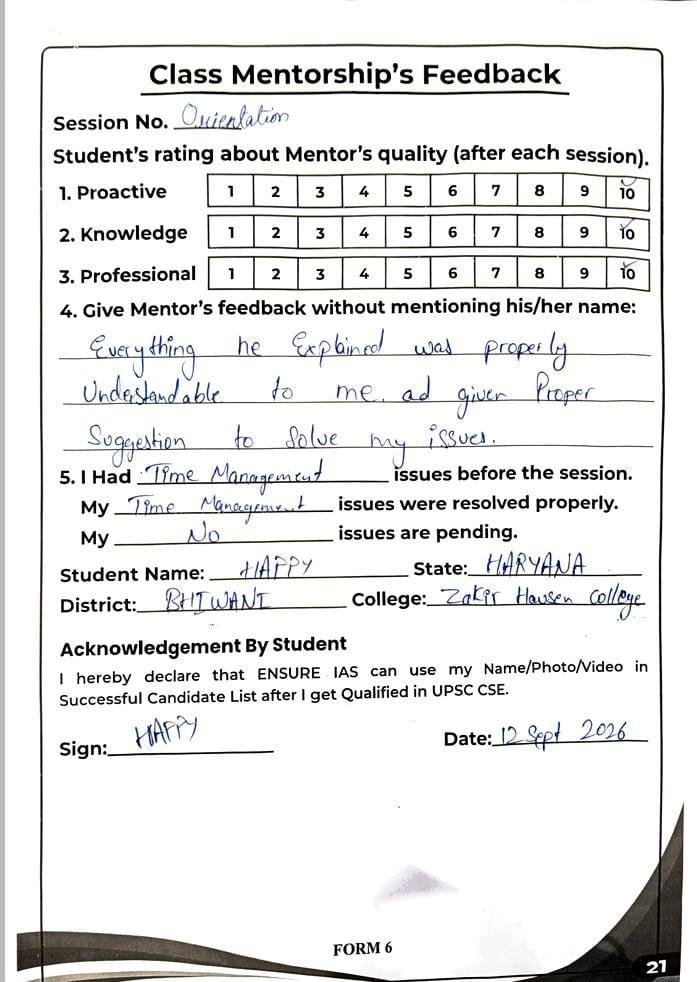 Class Mentorship's Feedback
Session No. Orientation
Student's rating about Mentor's quality (after each session).
1. Proactive 1 2 3 4 5 6 7 8 9 10
2. Knowledge 1 2 3 4 5 6 7 8 9 10
3. Professional 1 2 3 4 5 6 7 8 9 10
4. Give Mentor's feedback without mentioning his/her name:
Everything he Explained was properly
Understandable to me. ad given Proper
Suggestion to Solve my issues.
5. I Had Time Management issues before the session.
My Time Management issues were resolved properly.
My No issues are pending.
Student Name: HAPPY State: HARYANA
District: BHIWANI College: Zakir Hausen College
Acknowledgement By Student
I hereby declare that ENSURE IAS can use my Name/Photo/Video in
Successful Candidate List after I get Qualified in UPSC CSE.
Sign: HAPPY Date: 12 Sept 2026
FORM 6
21